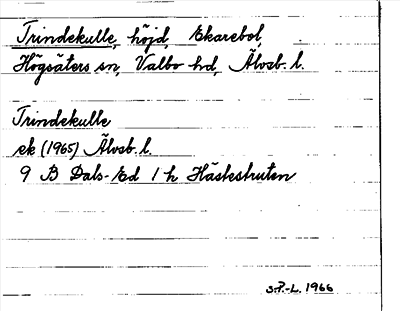 Trindekulle, höjd, Ekarebol,
Högsäters sn, Valbo hd, Älvsb. l.
Trindekulle
ek (1965) Älvsb. l.
9 B Dals-Ed 1 h Hästeskruten
S.P.-L. 1966